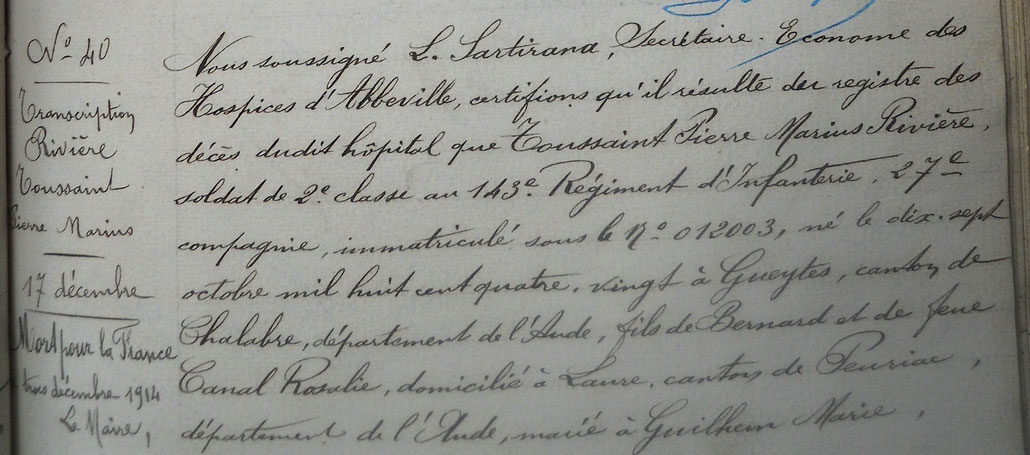 N° 40
Transcription
Rivière
Toussaint
Pierre Marius
17 décembre
Mort pour la France
décembre 1914
Le Maire,
Nous soussigné L. Sartirana, Secrétaire-Econome des
Hospices d'Abbeville, certifions qu'il résulte du registre des
décès dudit hôpital que Toussaint Pierre Marius Rivière,
soldat de 2e classe au 143e Régiment d'Infanterie, 27e
compagnie, immatriculé sous le N° 012003, né le dix-sept
octobre mil huit cent quatre-vingt à Gueytes, canton de
Chalabre, département de l'Aude, fils de Bernard et de feue
Canal Rosalie, domicilié à Laure, canton de Peuriac,
département de l'Aude, marié à Guilhem Marie,